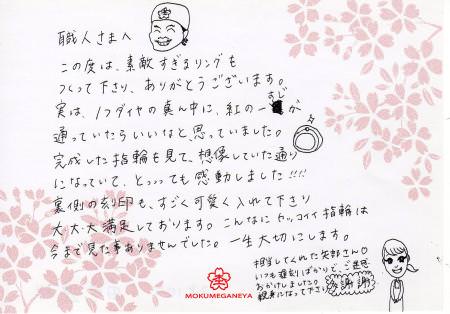 職人さまへ
この度は、素敵すぎるリングも
つくって下さり、ありがとうございます。
実は、1つダイヤの真ん中に、紅の一すじが
通っていたらいいなと、思っていました。
完成した指輪も見て、想像していた通り
になっていて、とっっっても感動しました!!!!
裏側の刻印も、すごく可愛く入れて下さり
大、大・大満足しております。こんなにカッコイイ指輪は
今まで見た事ありませんでした。一生大切にします。
担当してくれた矢部さん♡
いつも遅刻ばかりで、ご迷惑
おかけしました。
親身になって下さり
感謝謝
MOKUMEGANEYA